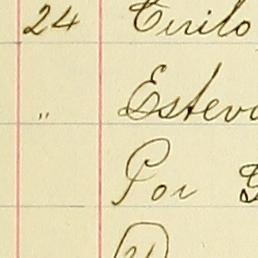 24 Cirilo
" Esteva
Por G